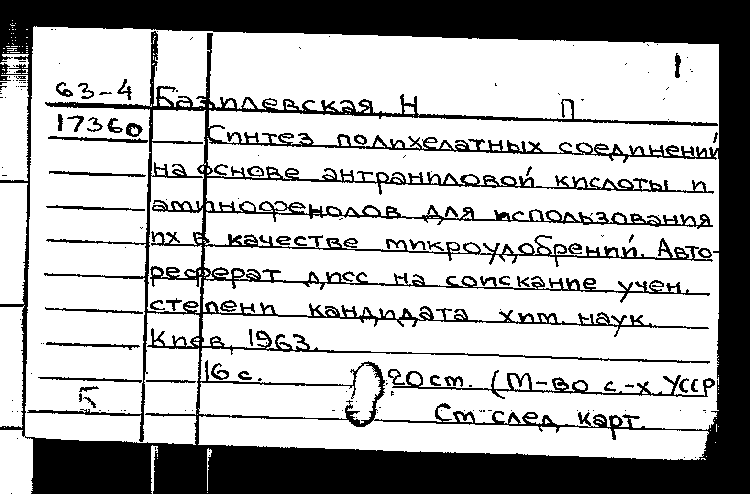 1
63-4 Базилевская, Н П
17360 Синтез полихелатных соединений
на основе антраниловой кислоты и
аминофенолов для использования
их в качестве микроудобрений. Авто-
реферат дисс на соискание учен.
степени кандидата хим. наук.
Киев, 1963.
16 с. 20 ст. (М-во с.-х. УССР
Б
См след карт.